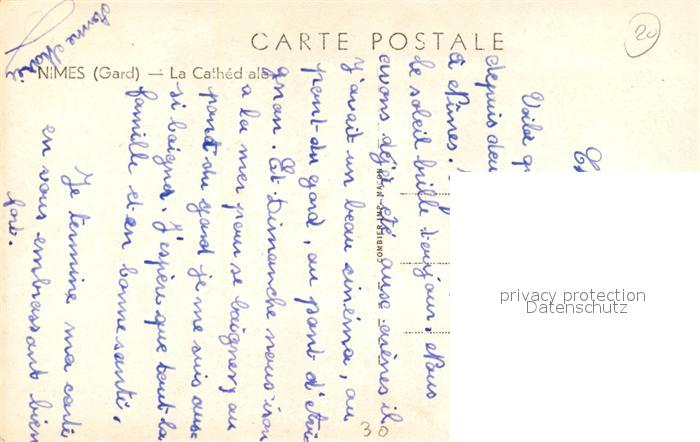 CARTE POSTALE
NIMES (Gard) — La Cathédrale
20
Voilà
depuis
à Nîmes.
le soleil brille toujours. Nous
avons déjà été aux arènes il
y avait un beau cinéma, au
pont-du gard, au pont d'
gnon. Et Dimanche nous irons
a la mer pour se baigner, au
pond du gard je me suis aus
si baigner. J'espère que tout la
famille et en bonne santé.
Je termine ma carte
en vous embrassant bien
fort.
COMBIER IMP. MACON
30
privacy protection
Datenschutz